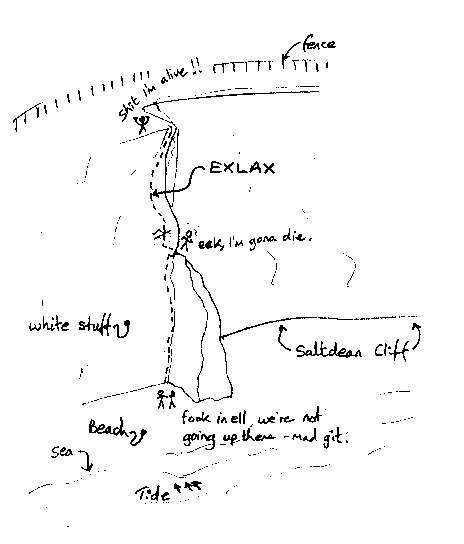 fence
Shit I'm alive!!
EXLAX
eek, I'm gona die.
white stuff
Saltdean Cliff
Beach
fook in ell, we're not
going up there - mad git.
Sea
Tide